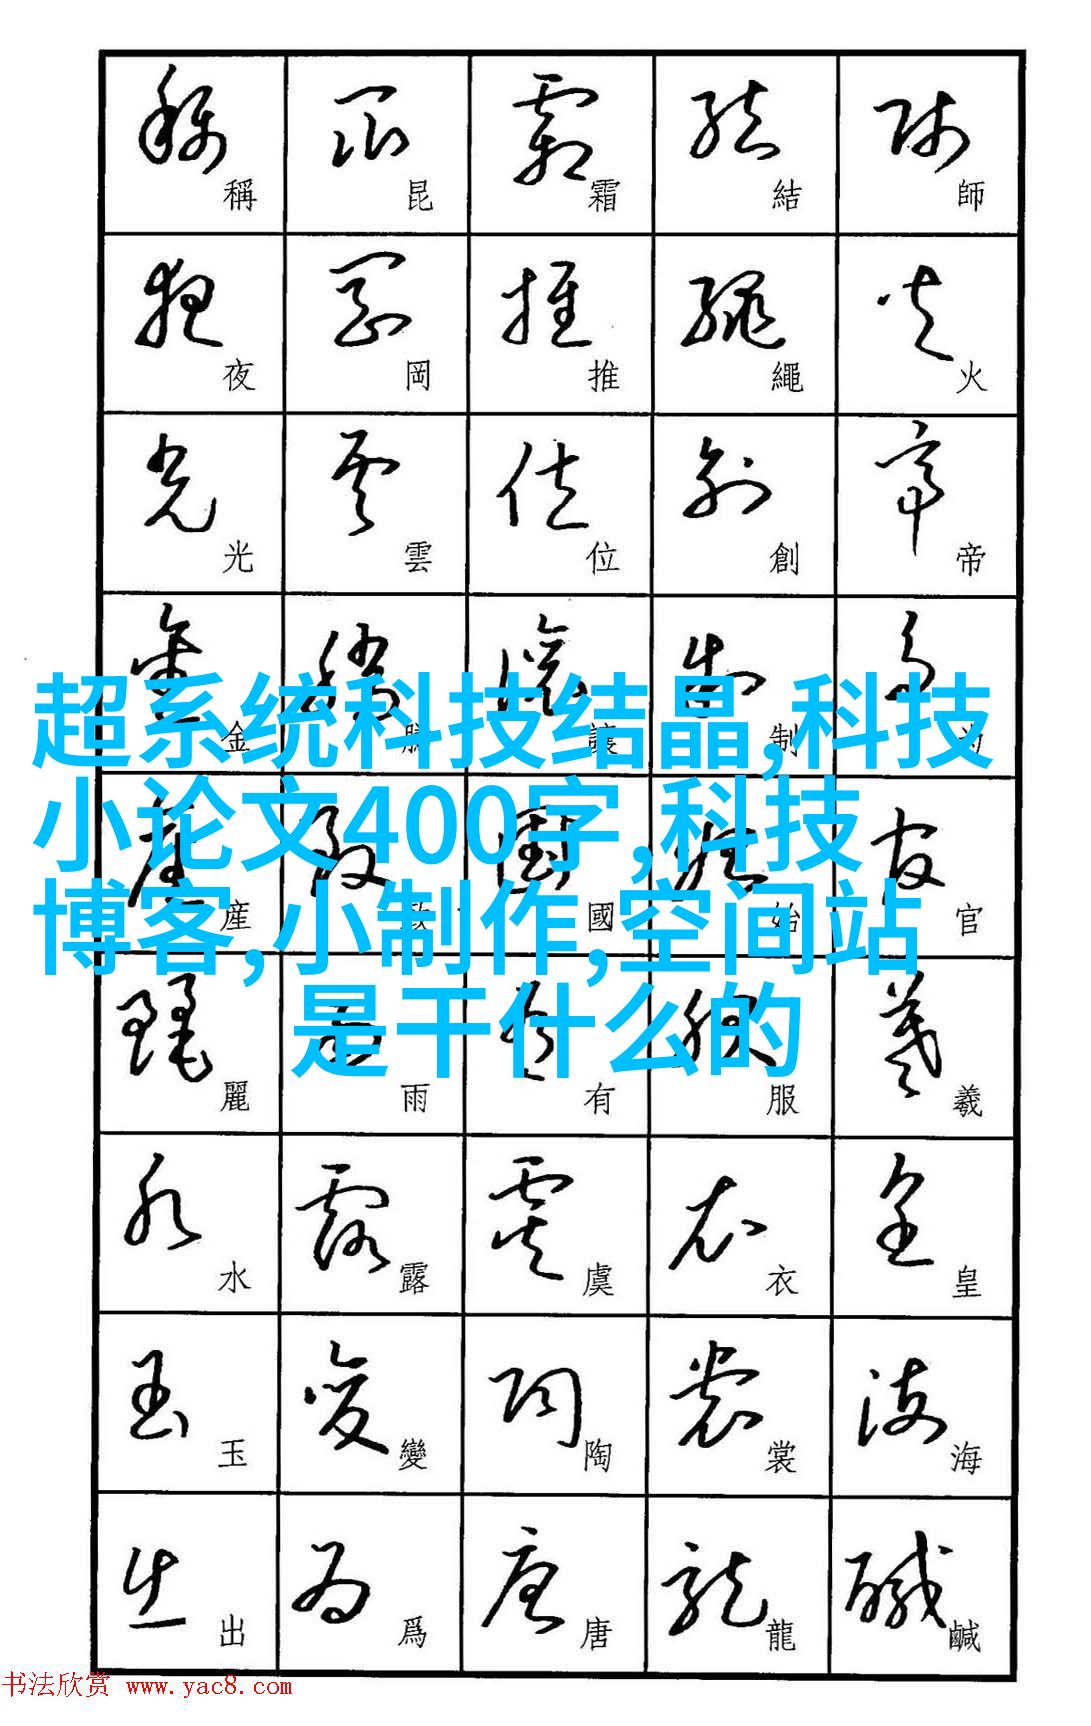 師火帝官羲皇海鹹
結繩創制始服衣裳龍
霜推位讓國有虞陶唐
昆岡雲騰致雨露變爲
稱夜光金産麗水玉出
超系统科技结晶,科技
小论文400字,科技
博客,小制作,空间站
是干什么的
书法欣赏 www.yac8.com